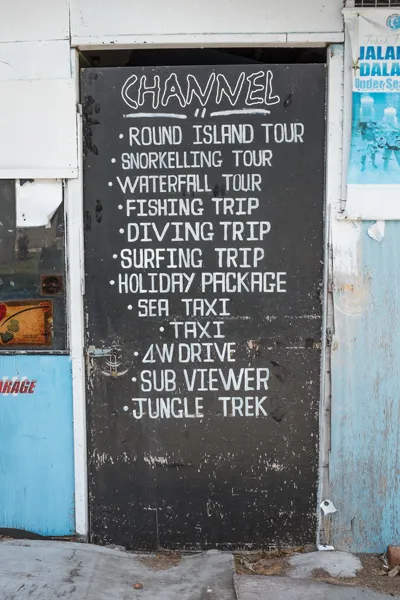 CHANNEL
• ROUND ISLAND TOUR
• SNORKELLING TOUR
• WATERFALL TOUR
• FISHING TRIP
• DIVING TRIP
• SURFING TRIP
• HOLIDAY PACKAGE
• SEA TAXI
• TAXI
• 4W DRIVE
• SUB VIEWER
• JUNGLE TREK
JALAN
DALA
Under Sea
ARAGE